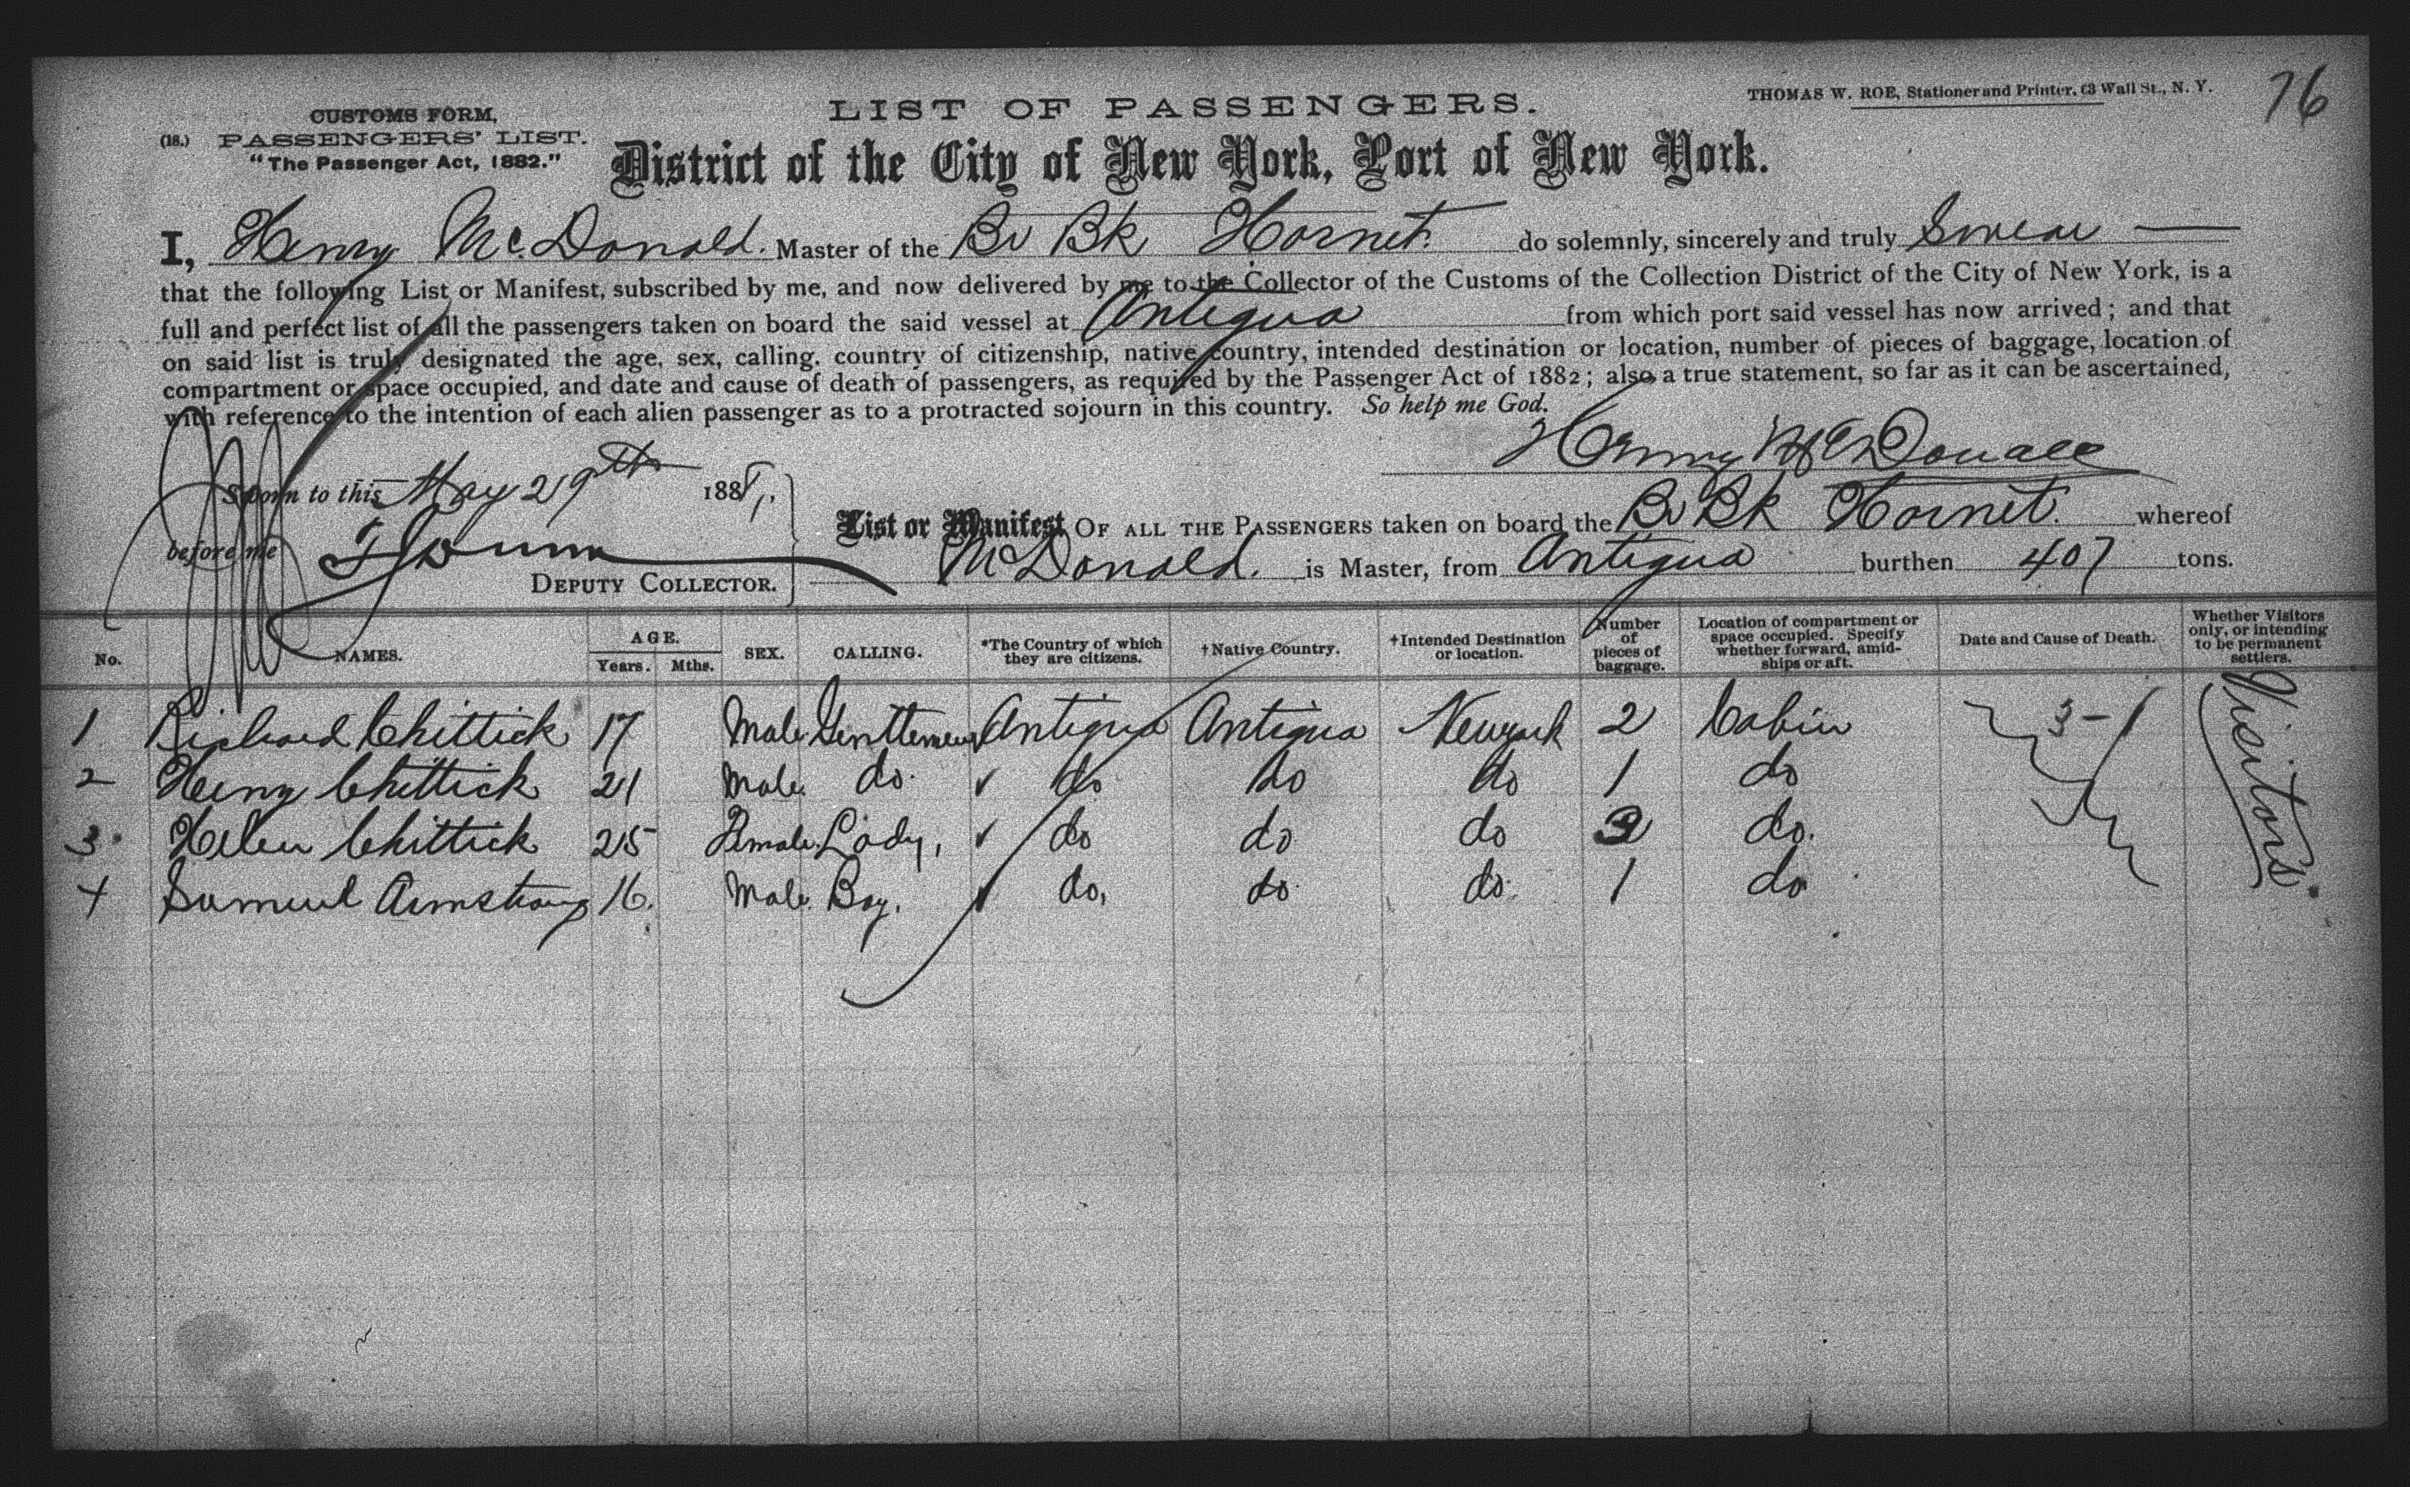 CUSTOMS FORM,
(18.) PASSENGERS' LIST.
"The Passenger Act, 1882."
LIST OF PASSENGERS.
THOMAS W. ROE, Stationer and Printer, 63 Wall St., N. Y.
76
District of the City of New York, Port of New York.
I, Henry McDonald. Master of the Br Bk Hornet. do solemnly, sincerely and truly Swear
that the following List or Manifest, subscribed by me, and now delivered by me to the Collector of the Customs of the Collection District of the City of New York, is a
full and perfect list of all the passengers taken on board the said vessel at Antigua from which port said vessel has now arrived; and that
on said list is truly designated the age, sex, calling, country of citizenship, native country, intended destination or location, number of pieces of baggage, location of
compartment or space occupied, and date and cause of death of passengers, as required by the Passenger Act of 1882; also a true statement, so far as it can be ascertained,
with reference to the intention of each alien passenger as to a protracted sojourn in this country. So help me God.
Henry McDonald
Sworn to this May 29th 188
before me
DEPUTY COLLECTOR.
List or Manifest OF ALL THE PASSENGERS taken on board the Br Bk Hornet. whereof
McDonald. is Master, from Antigua burthen 407 tons.
No. NAMES. AGE. Years. Mths. SEX. CALLING. *The Country of which they are citizens. †Native Country. †Intended Destination or location. Number of pieces of baggage. Location of compartment or space occupied. Specify whether forward, amidships or aft. Date and Cause of Death. Whether Visitors only, or intending to be permanent settlers.
1 Richard Chittick 17 Male Gentlemen Antigua Antigua Newyork 2 Cabin 3-1 Visitors.
2 Henry Chittick 21 Male. do. do do do 1 do
3 Helen Chittick 25 Female. Lady, do do do do.
4 Samuel Armstrong 16. Male. Boy. do, do do 1 do